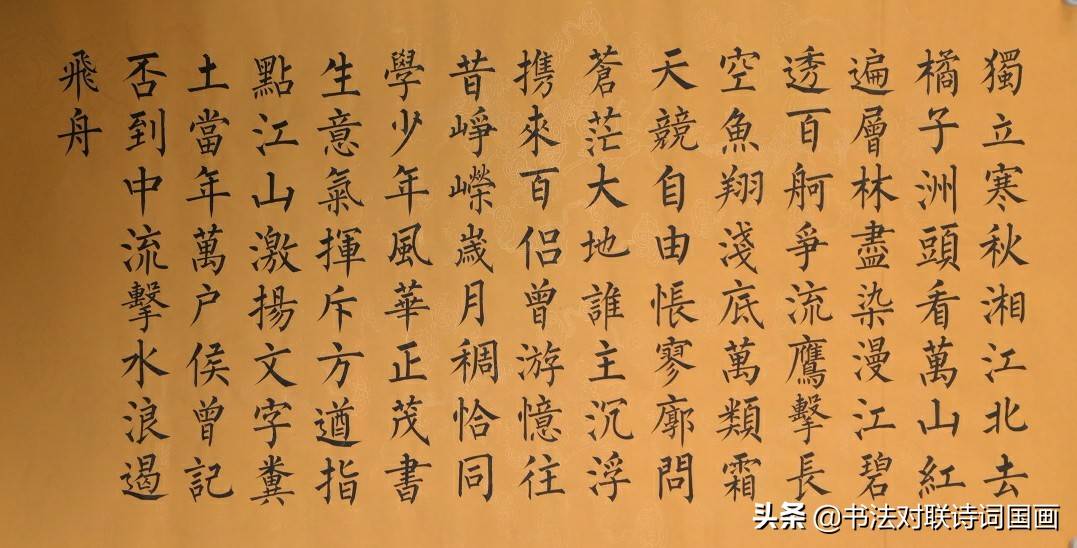 獨立寒秋湘江北去
橘子洲頭看萬山紅
遍層林盡染漫江碧
透百舸爭流鷹擊長
空魚翔淺底萬類霜
天競自由悵寥廓問
蒼茫大地誰主沉浮
携來百侣曾游憶往
昔崢嶸嵗月稠恰同
學少年風華正茂書
生意氣揮斥方遒指
點江山激揚文字糞
土當年萬户侯曾記
否到中流擊水浪遏
飛舟
头条 @书法对联诗词国画